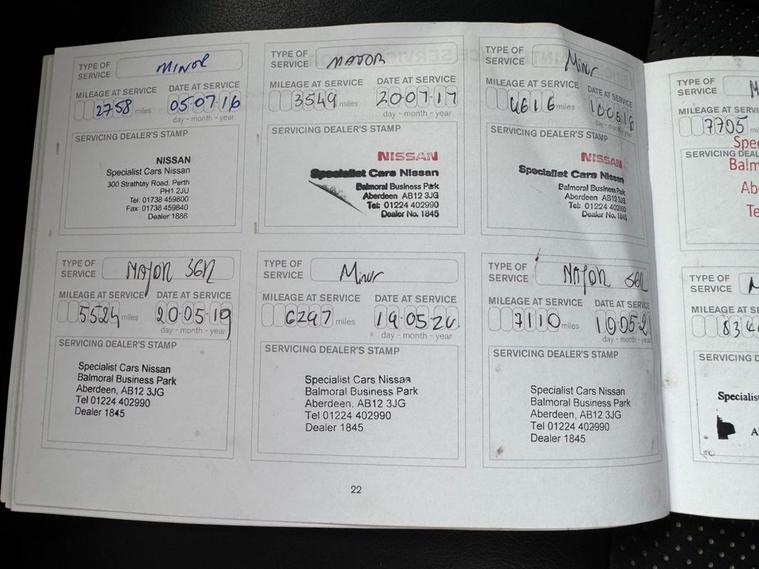 TYPE OF SERVICE Minor
MILEAGE AT SERVICE DATE AT SERVICE
2758 miles 05-07-16
day - month - year
SERVICING DEALER'S STAMP
NISSAN
Specialist Cars Nissan
300 Strathtay Road, Perth
PH1 2JU
Tel: 01738 459800
Fax: 01738 459840
Dealer 1886
TYPE OF SERVICE MAJOR
MILEAGE AT SERVICE DATE AT SERVICE
3549 miles 20-07-17
day - month - year
SERVICING DEALER'S STAMP
NISSAN
Specialist Cars Nissan
Balmoral Business Park
Aberdeen AB12 3JG
Tel: 01224 402990
Dealer No. 1845
TYPE OF SERVICE Minor
MILEAGE AT SERVICE DATE AT SERVICE
4616 miles
day - month - year
SERVICING DEALER'S STAMP
NISSAN
Specialist Cars Nissan
Balmoral Business Park
Aberdeen AB12 3JG
Tel: 01224 402990
Dealer No. 1845
TYPE OF SERVICE Major
MILEAGE AT SERVICE DATE AT SERVICE
miles 20-05-19
day - month - year
SERVICING DEALER'S STAMP
Specialist Cars Nissan
Balmoral Business Park
Aberdeen, AB12 3JG
Tel 01224 402990
Dealer 1845
TYPE OF SERVICE Minor
MILEAGE AT SERVICE DATE AT SERVICE
6297 miles 19-05-20
day - month - year
SERVICING DEALER'S STAMP
Specialist Cars Nissan
Balmoral Business Park
Aberdeen, AB12 3JG
Tel 01224 402990
Dealer 1845
TYPE OF SERVICE Major
MILEAGE AT SERVICE DATE AT SERVICE
7110 miles 10-05-21
day - month - year
SERVICING DEALER'S STAMP
Specialist Cars Nissan
Balmoral Business Park
Aberdeen, AB12 3JG
Tel 01224 402990
Dealer 1845
22
TYPE OF SERVICE
MILEAGE AT SERVI
7705 miles
SERVICING DEAL
Spe
Balm
Ab
Te
TYPE OF SERVICE
MILEAGE AT S
SERVICING D
Specialis
A